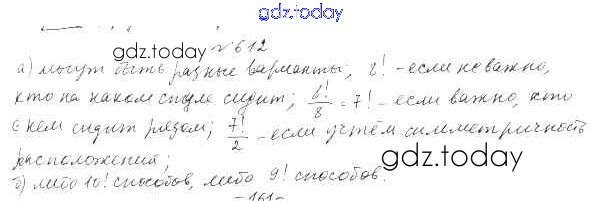 gdz.today
№612
gdz.today
а) могут быть разные варианты; 8! - если неважно,
кто на каком стуле сидит; 8!/8 = 7! - если важно, кто
с кем сидит рядом; 7!/2 - если учтём симметричность
расположения;
gdz.today
б) либо 10! способов, либо 9! способов.
-161-